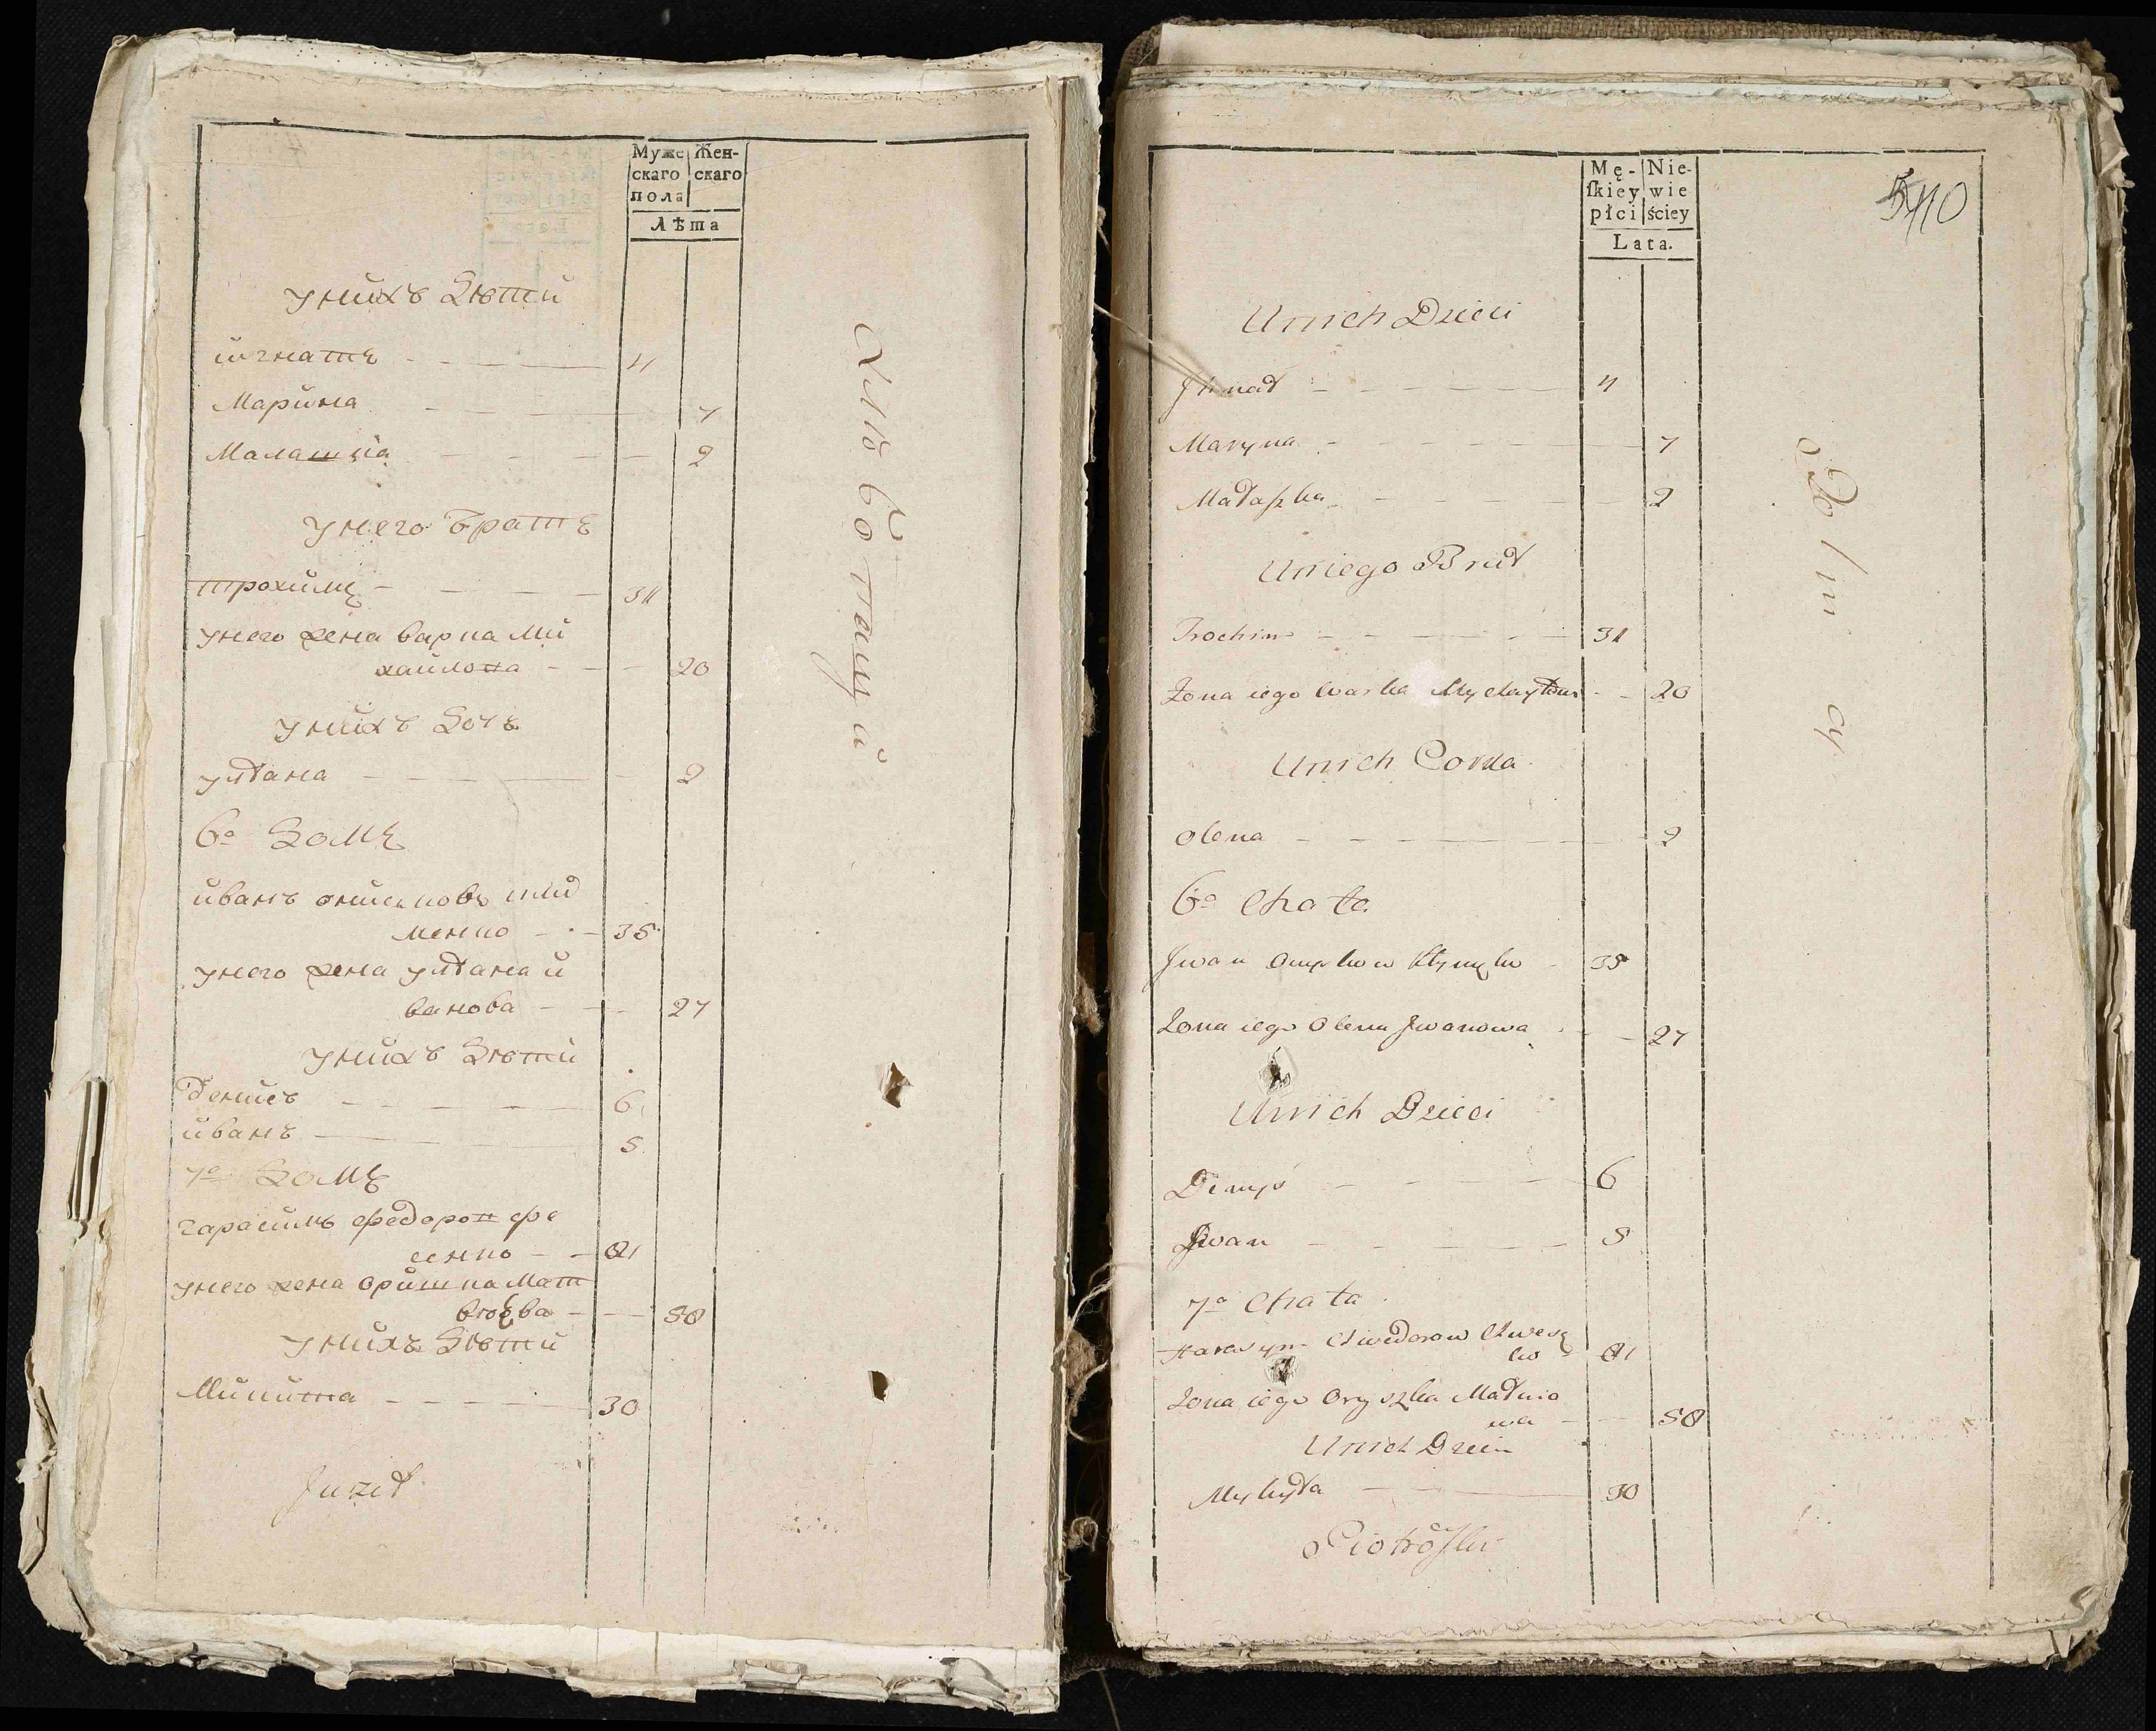 Муже Жен-
скаго скаго
пола
Лѣта
у нихъ дѣти
игнатъ 4
Марина 7
Малашка 2
у него братъ
трохимъ 31
у него жена варка Ми
хайлова 20
у нихъ дочь
улдана 2
6й домъ
иванъ
менко 35
у него жена улдана и
ванова 27
у нихъ дѣти
денисъ 6
иванъ 5
7й домъ
гарасимъ федоров фе
сенко 61
у него жена оришка Мат
вѣева 50
у нихъ дѣти
Микита 30
Juzef
Mę- Nie-
skiey wie
płci ściey
Lata.
10
Unich Dzieci
Jhnat 4
Maryna 7
Małaszka 2
Uniego Brat
Trochim 31
Żona iego Warka Mychayłowa 20
Unich Corka
Olena 2
6a Chata
Jwan 35
Żona iego Olena Jwanowa 27
Unich Dzieci
Denys 6
Jwan 5
7a Chata
Harasym Chwedorow Chwesę
ko 61
Żona iego Oryszka Matwio
wa 50
Unich Dzieci
Mykyta 30
Piotroski